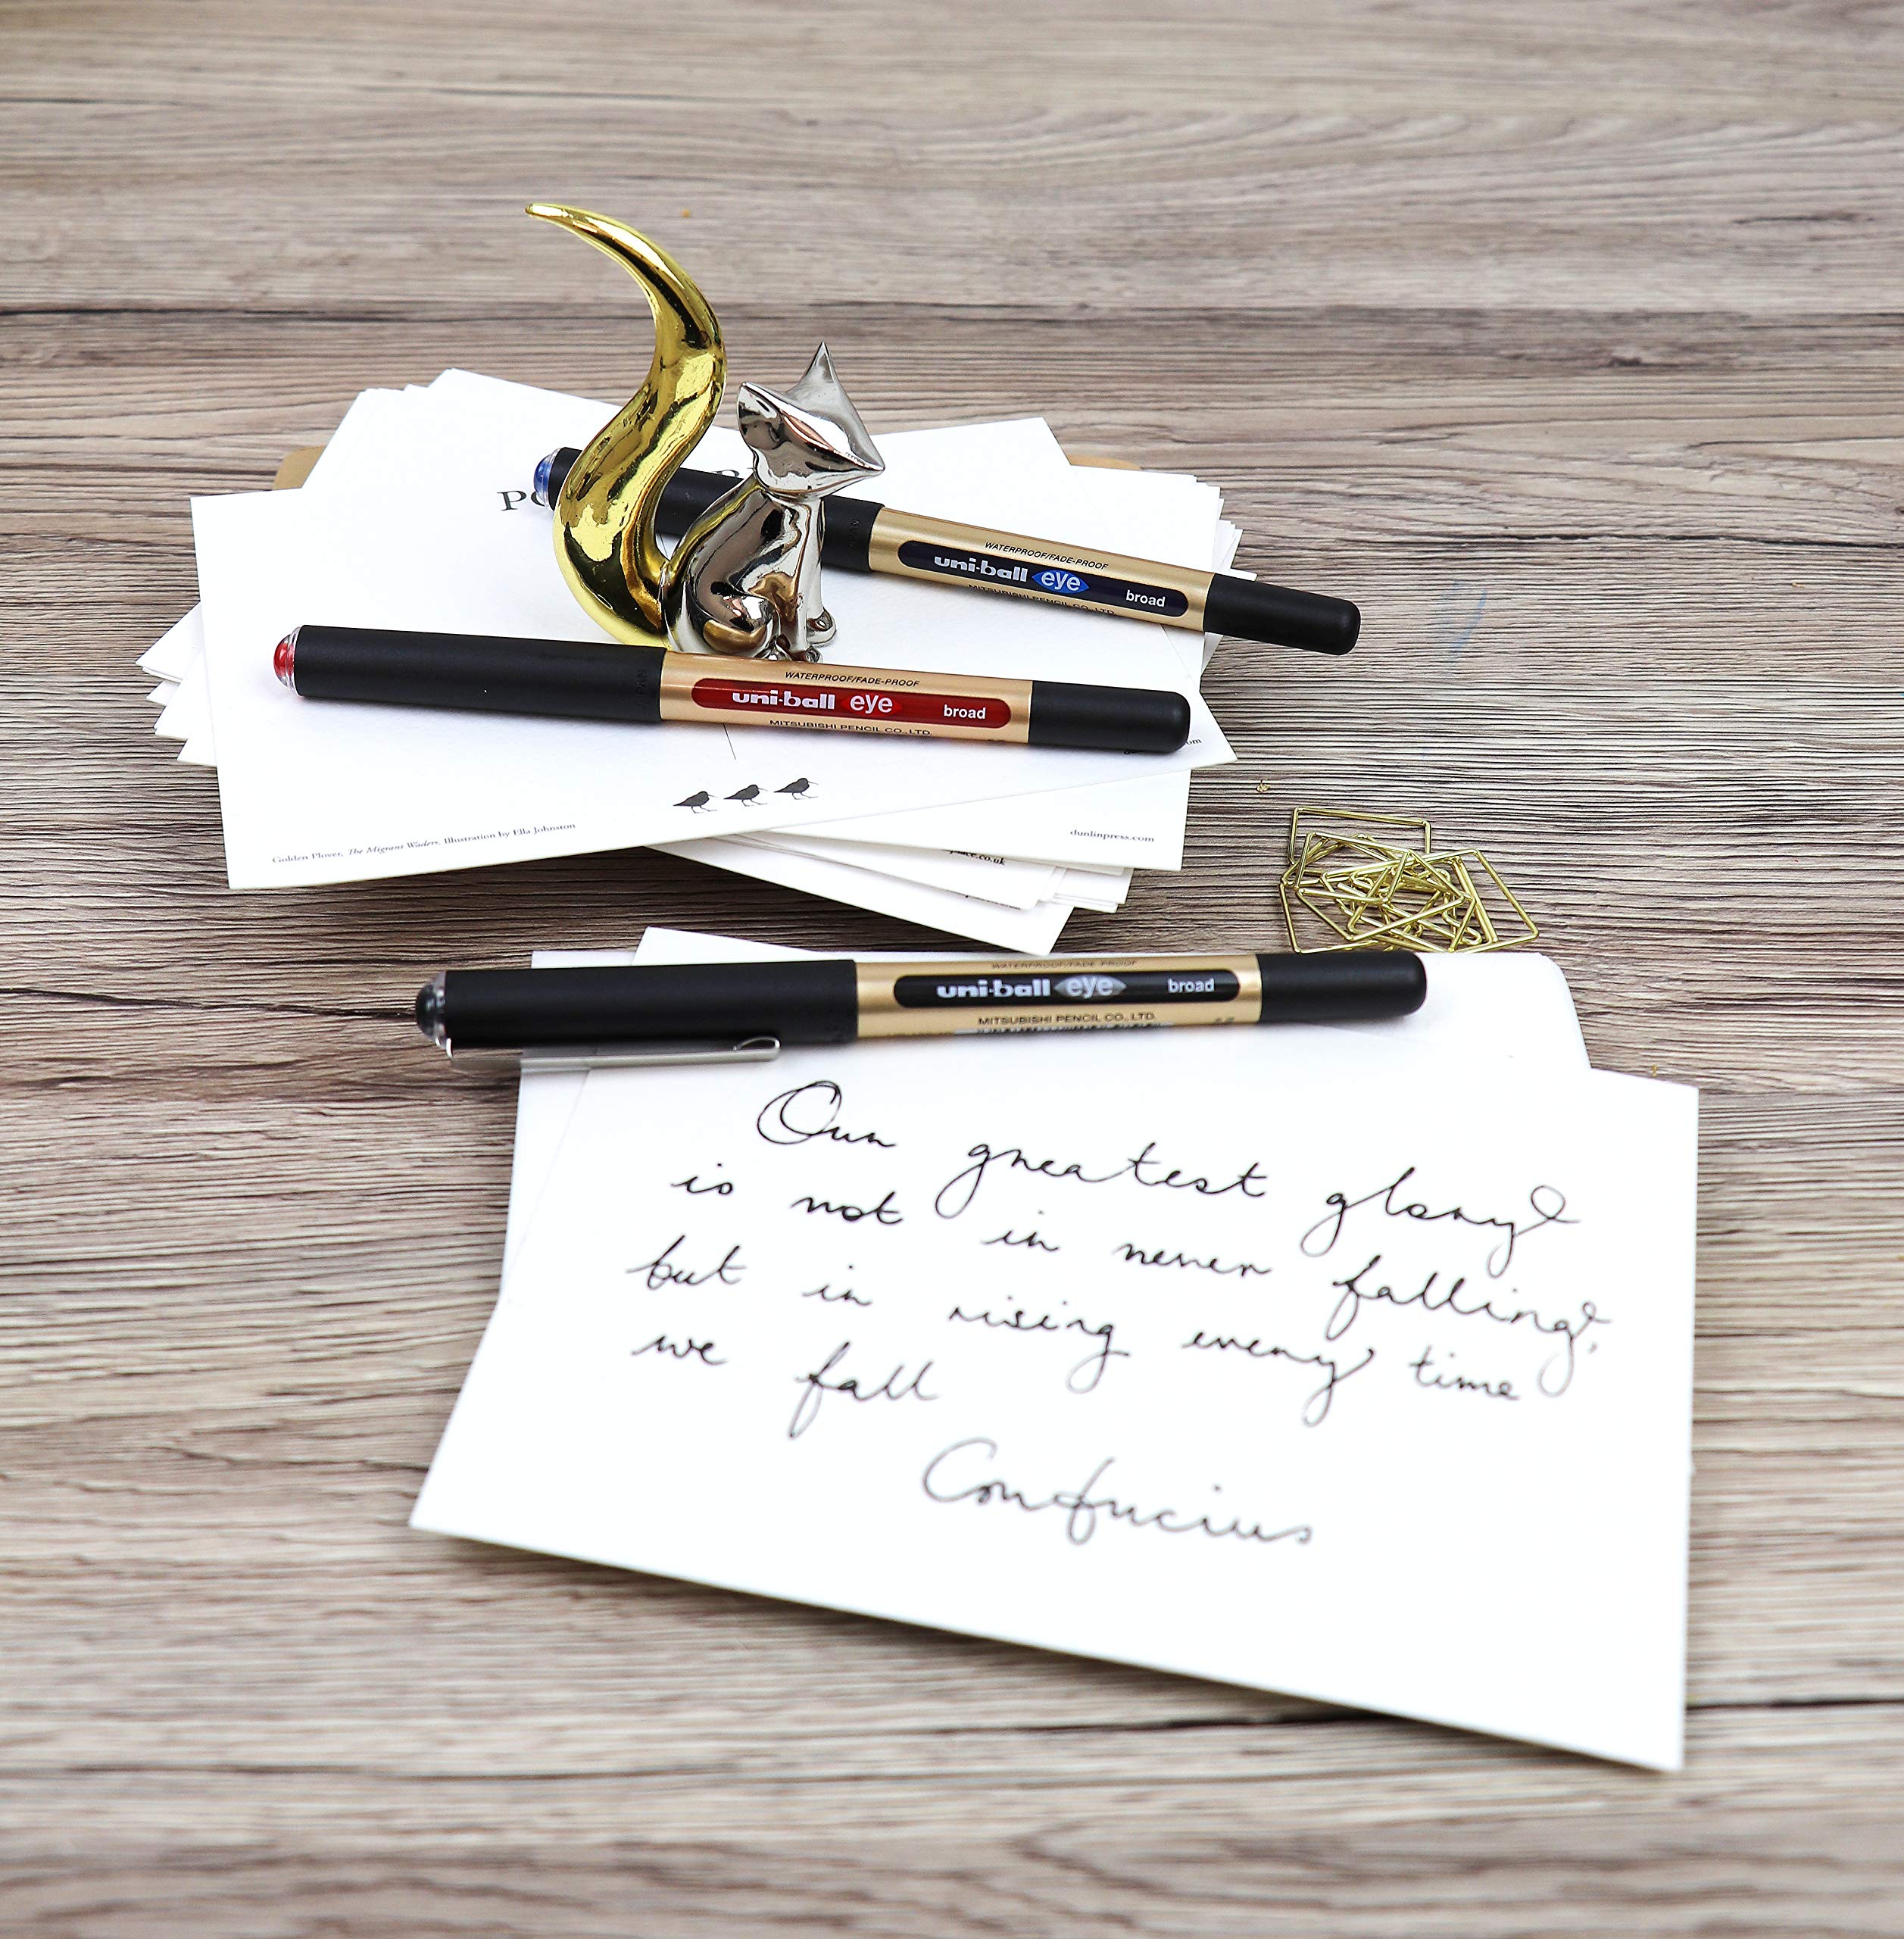 WATERPROOF/FADE-PROOF
uni-ball eye broad
MITSUBISHI PENCIL CO., LTD.
WATERPROOF/FADE-PROOF
uni-ball eye broad
MITSUBISHI PENCIL CO., LTD.
Golden Plover, The Migrant Waders. Illustration by Ella Johnston
dunlinpress.com
WATERPROOF/FADE-PROOF
uni-ball eye broad
MITSUBISHI PENCIL CO., LTD.
Our greatest glory
is not in never falling,
but in rising every time
we fall
Confucius